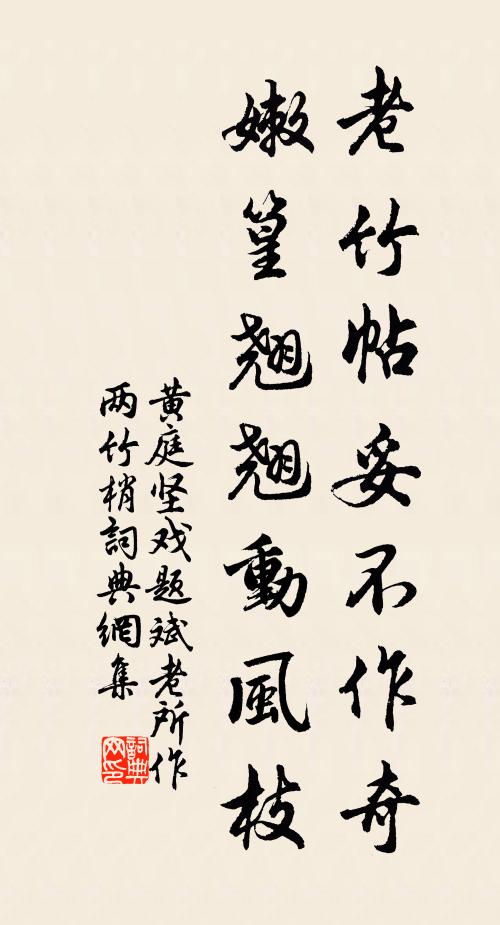 老竹帖妥不作奇
嫩篁翘翘動風枝
黄庭坚戏题斌老所作
两竹梢詞典網集
詞典網印